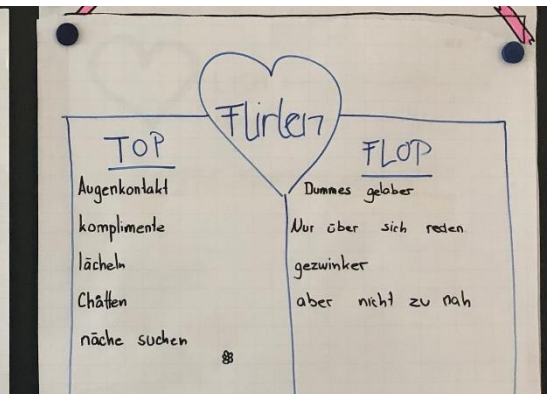 Flirten
TOP
Augenkontakt
komplimente
lächeln
Chatten
näche suchen
FLOP
Dummes gelaber
Nur über sich reden
gezwinker
aber nicht zu nah